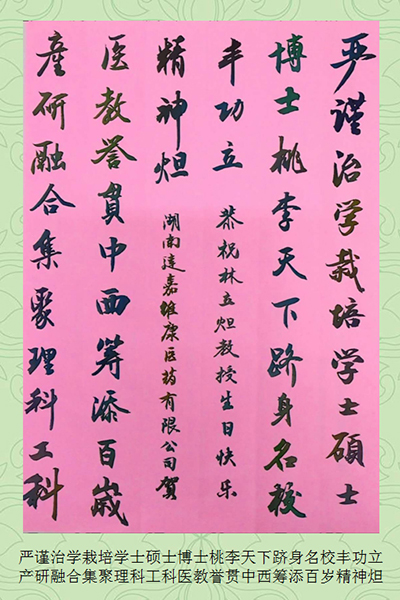 严谨治学栽培学士碩士
博士桃李天下跻身名校
丰功立
恭祝林立炟教授生日快乐
精神炟
湖南达嘉维康医药有限公司贺
医教誉贯中西筹添百歲
産研融合集聚理科工科
严谨治学栽培学士硕士博士桃李天下跻身名校丰功立
产研融合集聚理科工科医教誉贯中西筹添百岁精神炟